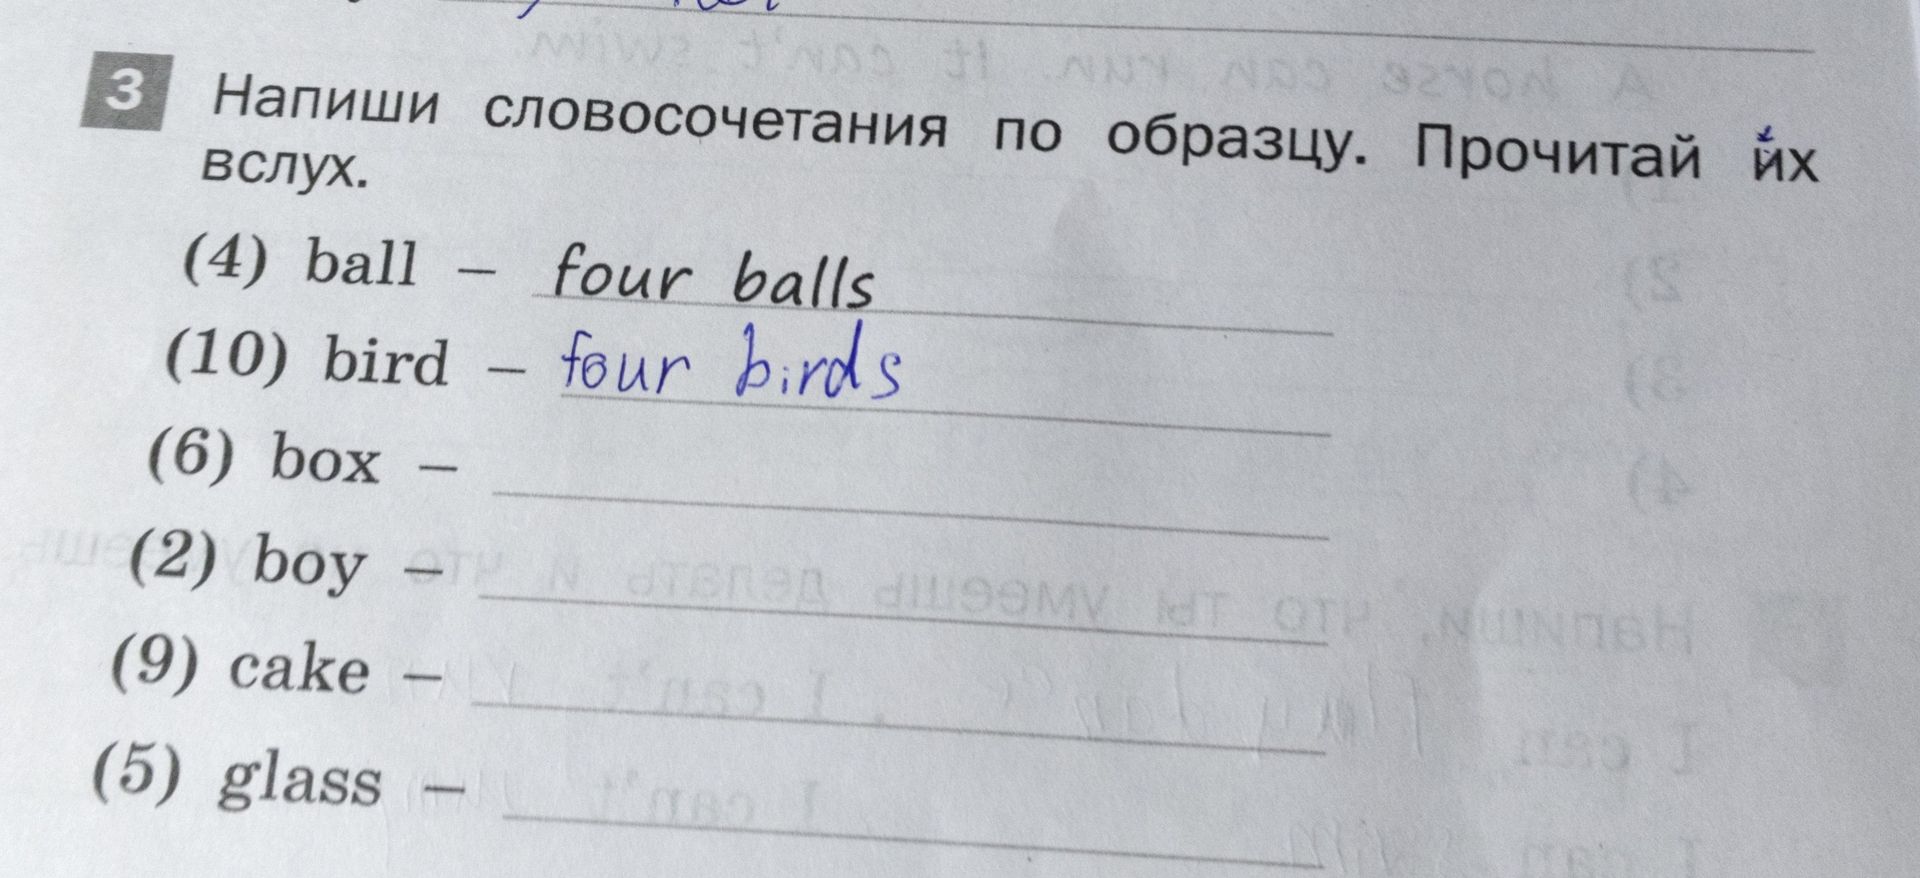 3 Напиши словосочетания по образцу. Прочитай их
вслух.
(4) ball – four balls
(10) bird – four birds
(6) box –
(2) boy –
(9) cake –
(5) glass –